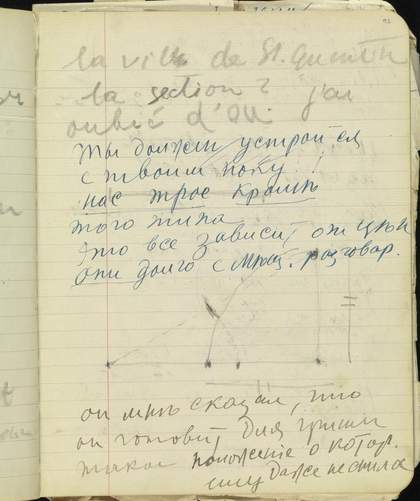 la ville de St. Quentin
la section 2 j'ai
oublié d'où
Ты должен устроиться
с твоим
нас трое кроме
того типа
Это все зависит от цены
они долго с разговар.
он мнѣ сказал, что
он готовит для
такое положение о котор.
ему даже не снилось